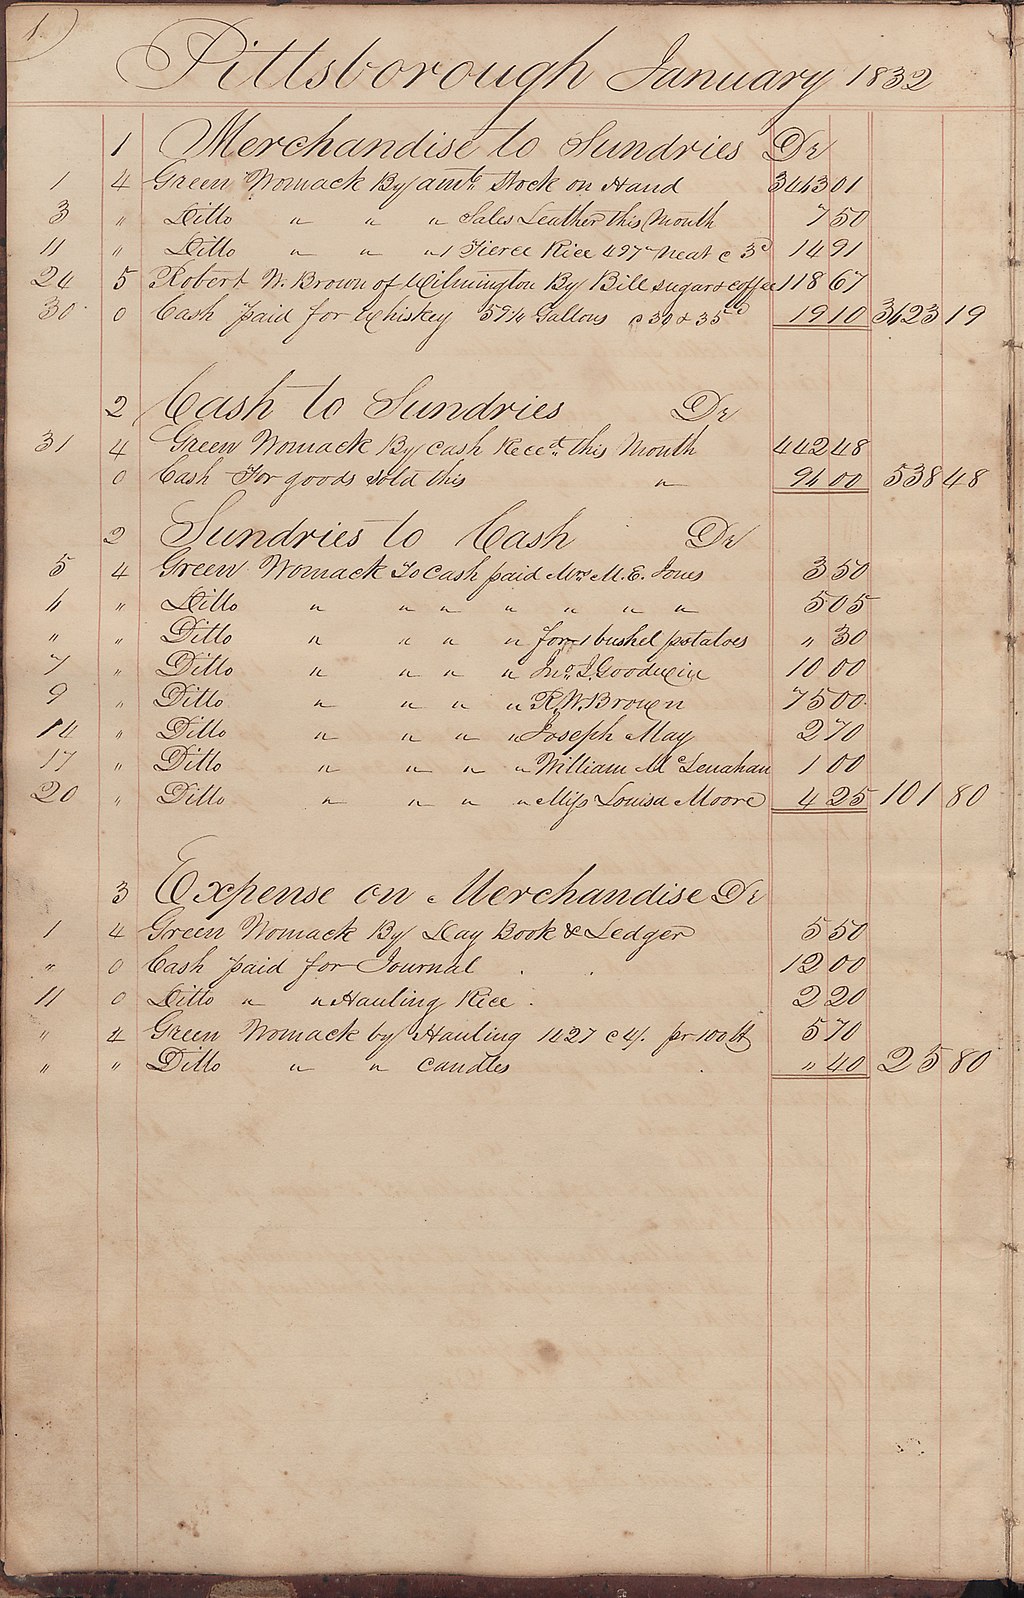 1
Pittsborough January 1832
1 Merchandise to Sundries Dr
1 4 Green Womack By amt. Stock on Hand 3463 01
3 " Ditto " " " Sales Leather this Month 7 50
11 " Ditto " " " 1 Tierce Rice 497 Neat @ 3d 14 91
24 5 Robert W. Brown of Wilmington By Bill sugar & coffee 118 67
30 0 Cash paid for Whiskey 59¼ Gallons @ 30 & 35d 19 10 3623 19
2 Cash to Sundries Dr
31 4 Green Womack By Cash Reced. this Month 442 48
0 Cash For goods sold this " 96 00 538 48
2 Sundries to Cash Dr
5 4 Green Womack To Cash paid Mrs M. E. Jones 3 50
6 " Ditto " " " " " " " 5 05
" " Ditto " " " " for 1 bushel potatoes " 30
7 " Ditto " " " " Jno. J. Goodwin 10 00
9 " Ditto " " " " R. W. Brown 75 00
14 " Ditto " " " " Joseph May 2 70
17 " Ditto " " " " William McLenahan 1 00
20 " Ditto " " " " Miss Louisa Moore 4 25 101 80
3 Expense on Merchandise Dr
1 4 Green Womack By Day Book & Ledger 5 50
" 0 Cash paid for Journal . . 12 00
11 0 Ditto " " Hauling Rice . 2 20
" 4 Green Womack by Hauling 1427 @ 4/. pr 100 lb 5 70
" " Ditto " " candles . " 40 25 80